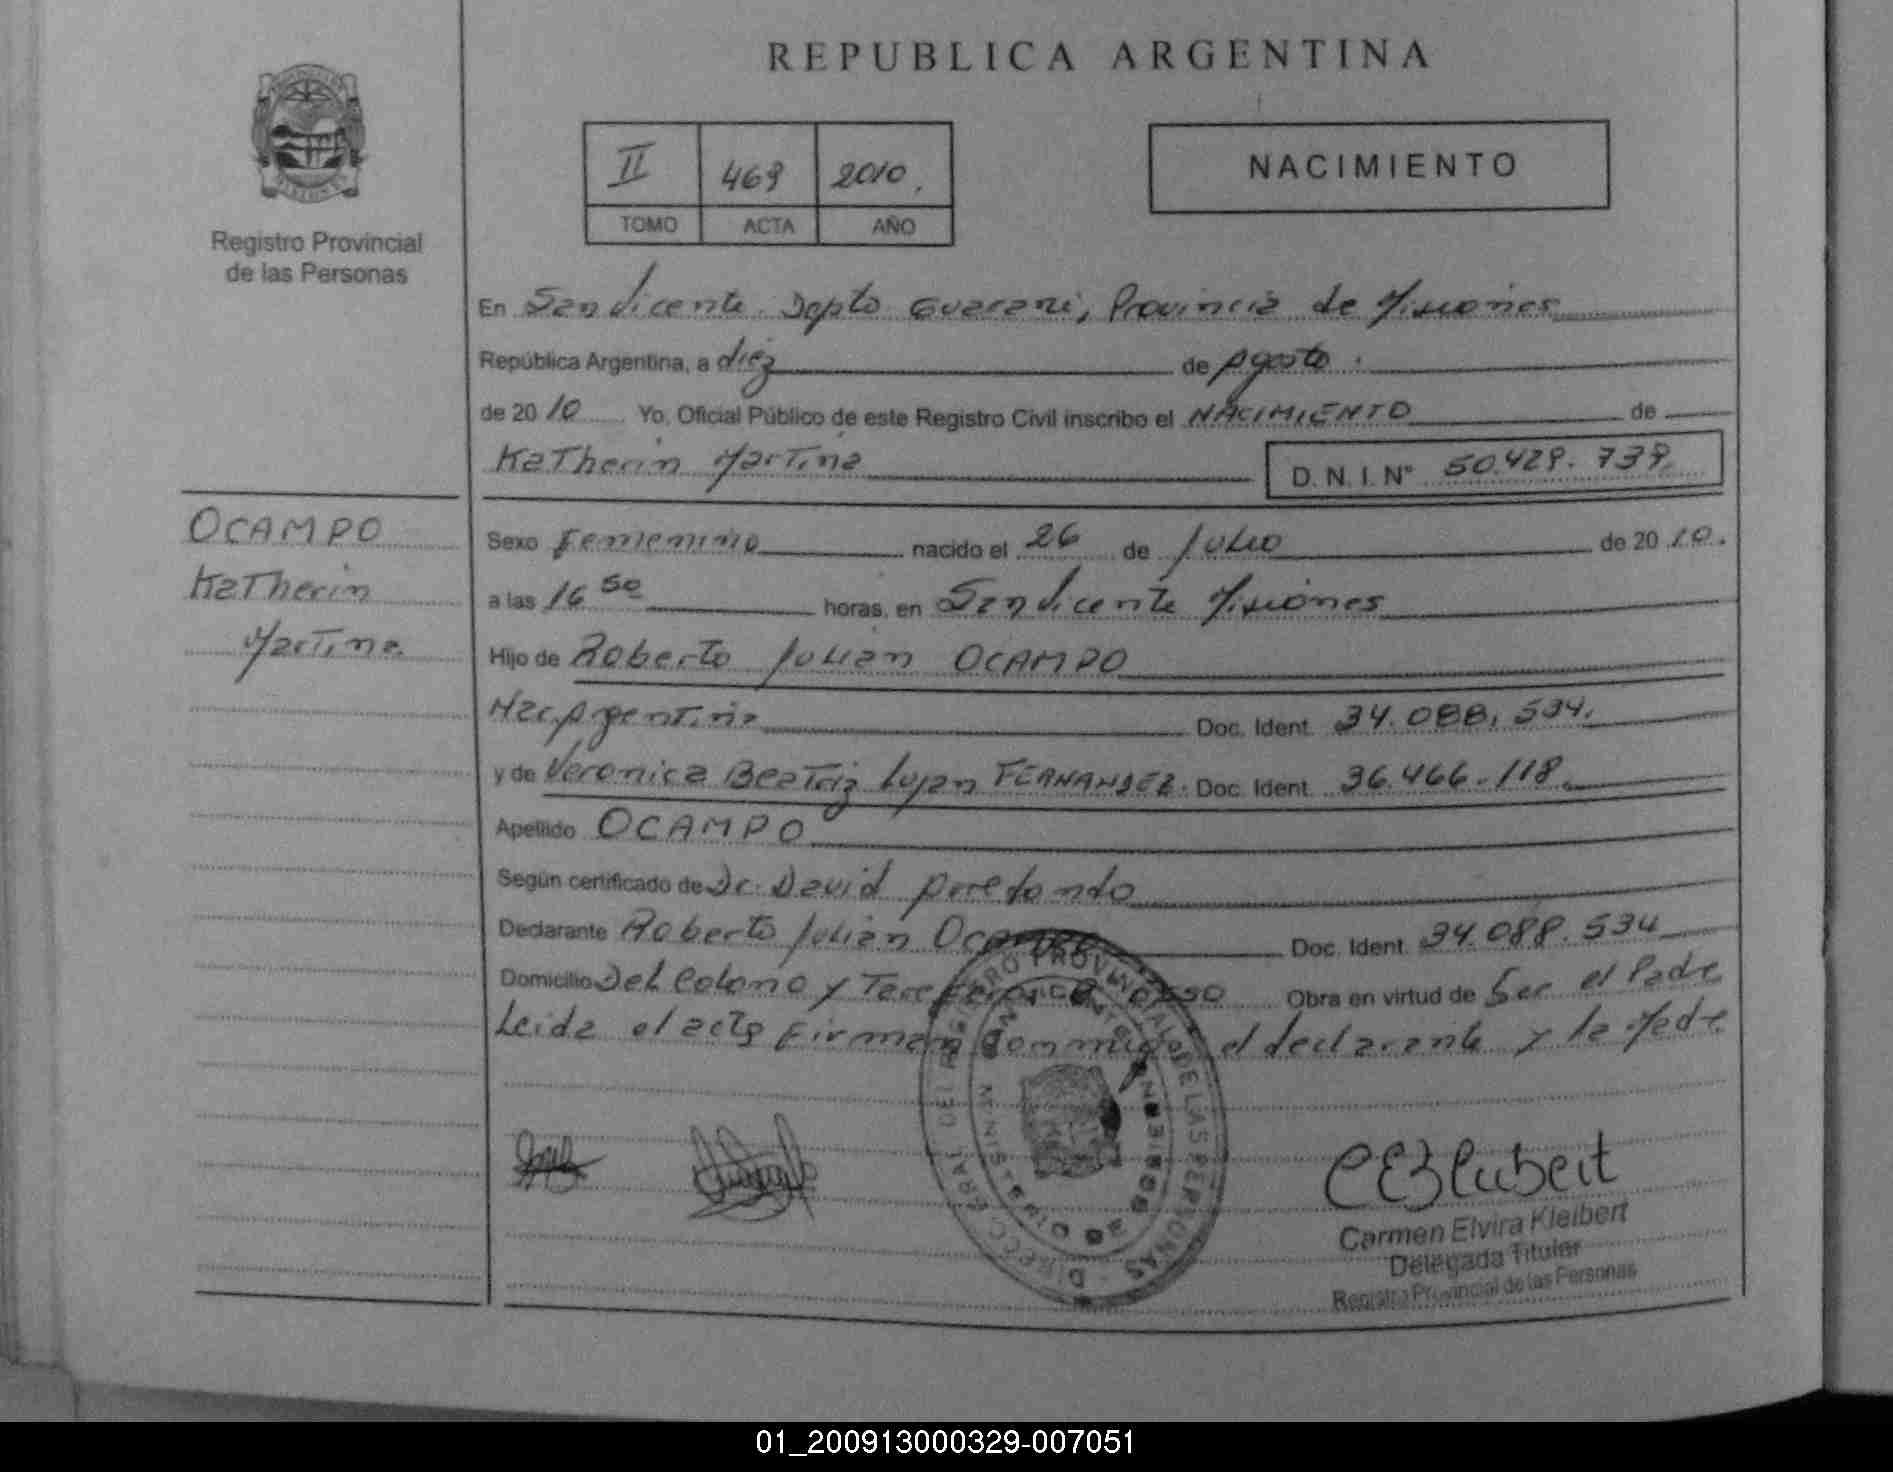 REPUBLICA ARGENTINA
II 469 2010
TOMO ACTA AÑO
NACIMIENTO
Registro Provincial
de las Personas
En San Vicente Depto Guarani, Provincia de Misiones
República Argentina, a diéz de Agosto
de 2010 Yo, Oficial Público de este Registro Civil inscribo el NACIMIENTO de
Katherin Martina D. N. I. Nº 50.429.739
OCAMPO
Katherin
Martina
Sexo Femenino nacido el 26 de Julio de 2010.
a las 16 50 horas, en San Vicente Misiones
Hijo de Roberto Julian OCAMPO
Nac. Argentina Doc. Ident. 34.088.534.
y de Veronica Beatriz Lujan FERNANDEZ. Doc. Ident. 36.466.118
Apellido OCAMPO
Según certificado de Dr. David Arredondo
Declarante Roberto Julián Ocampo Doc. Ident. 34.088.534
Domicilio Del Colono y Obra en virtud de Ser el Padre
Leida el acta Firman Conmigo el declarante y la Madre
DEL REGISTRO PROVINCIAL DE LAS PERSONAS
CEKleibert
Carmen Elvira Kleibert
Delegada Titular
Registro Provincial de las Personas
01_200913000329-007051